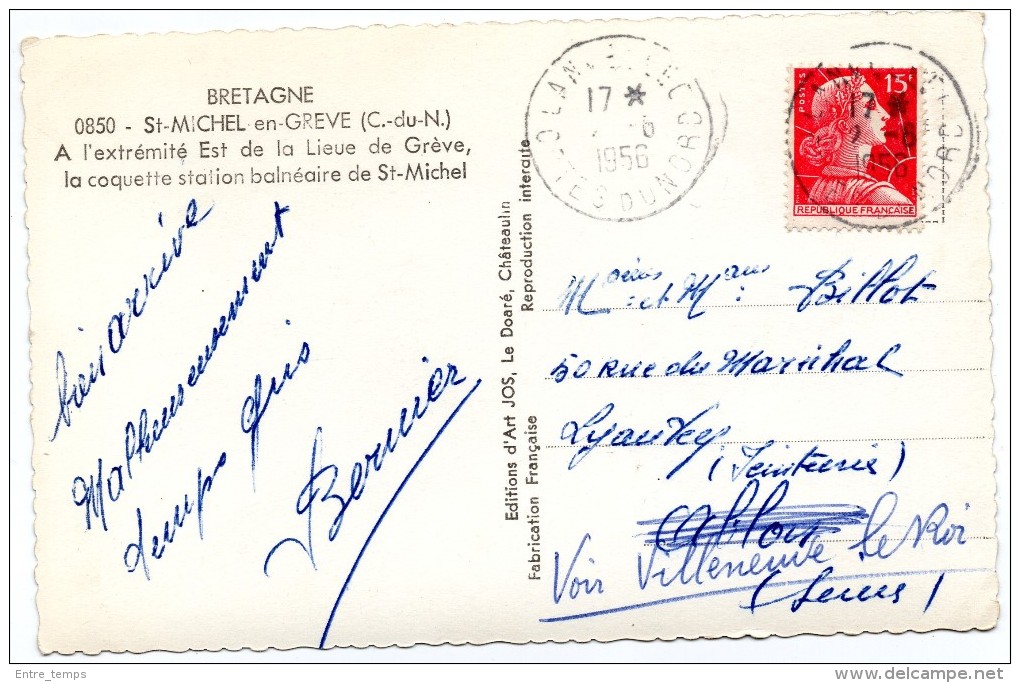 BRETAGNE
0850 - St-MICHEL-en-GREVE (C.-du-N.)
A l'extrémité Est de la Lieue de Grève,
la coquette station balnéaire de St-Michel
bien arrivé
Malheureusement
temps gris
Bernier
Editions d'Art JOS, Le Doaré, Châteaulin
Reproduction interdite
Fabrication Française
17 *
6
1956
COTES DU NORD
POSTES
15F
REPUBLIQUE FRANÇAISE
17 *
6
1956
NORD
et Billot
50 Rue du Maréchal
Lyautey
(Teinturerie)
Ablon
Voir Villeneuve Le Roi
(Seine)
Entre_temps
www.delcampe.net